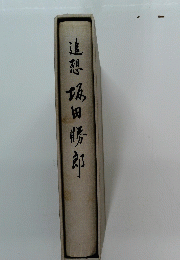 追想 堀田勝郎